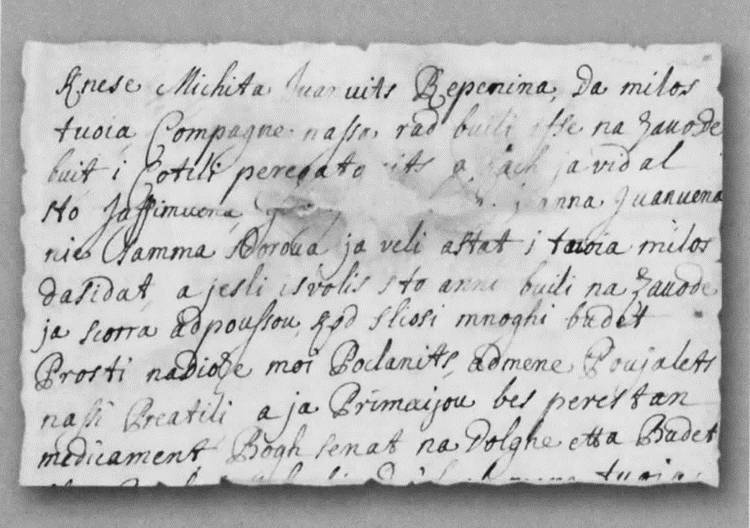 Knese Michita Juanvits Repenina, Da milos
tuoia Compagne nassa rad buili esse na Zauode
buit i Cotili peregato its a jach ja vidal
sto Jaffimuena, janna Juanuena
nie Samma sdorova ja veli astat i tuoia milos
dasidat, a jesli isvolis sto anni buili na Zauode
ja scorra adpoussou, god sliosi mnoghi budet
Prosti nadioze moi Poclanits, admene Poujalets
nassi Preatili a ja Primaijou bes perestan
medicament Bogh senat na dolghe etta Budet